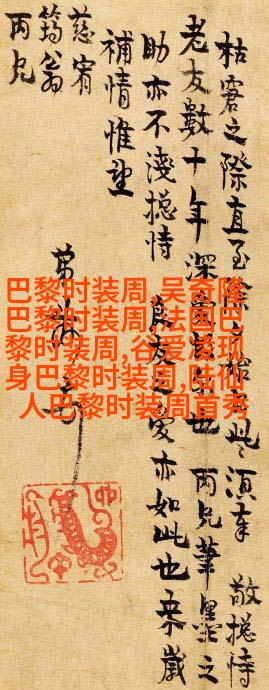 枯窘之際直至除此須奉 敬摠恃
老友數十年深也 丙兄筆墨之
助亦不淺摠恃 愛亦如此也來歲
補情惟望
慈宥
筠翁
丙兄
弟
巴黎时装周,吴奇隆
巴黎时装周,法国巴
黎时装周,谷爱凌现
身巴黎时装周,陆仙
人巴黎时装周首秀